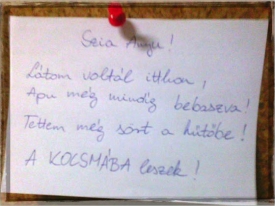 Szia Anyu!
Látom voltál itthon,
Apu még mindig bebaszva!
Tettem még sört a hűtőbe!
A KOCSMÁBA leszek!